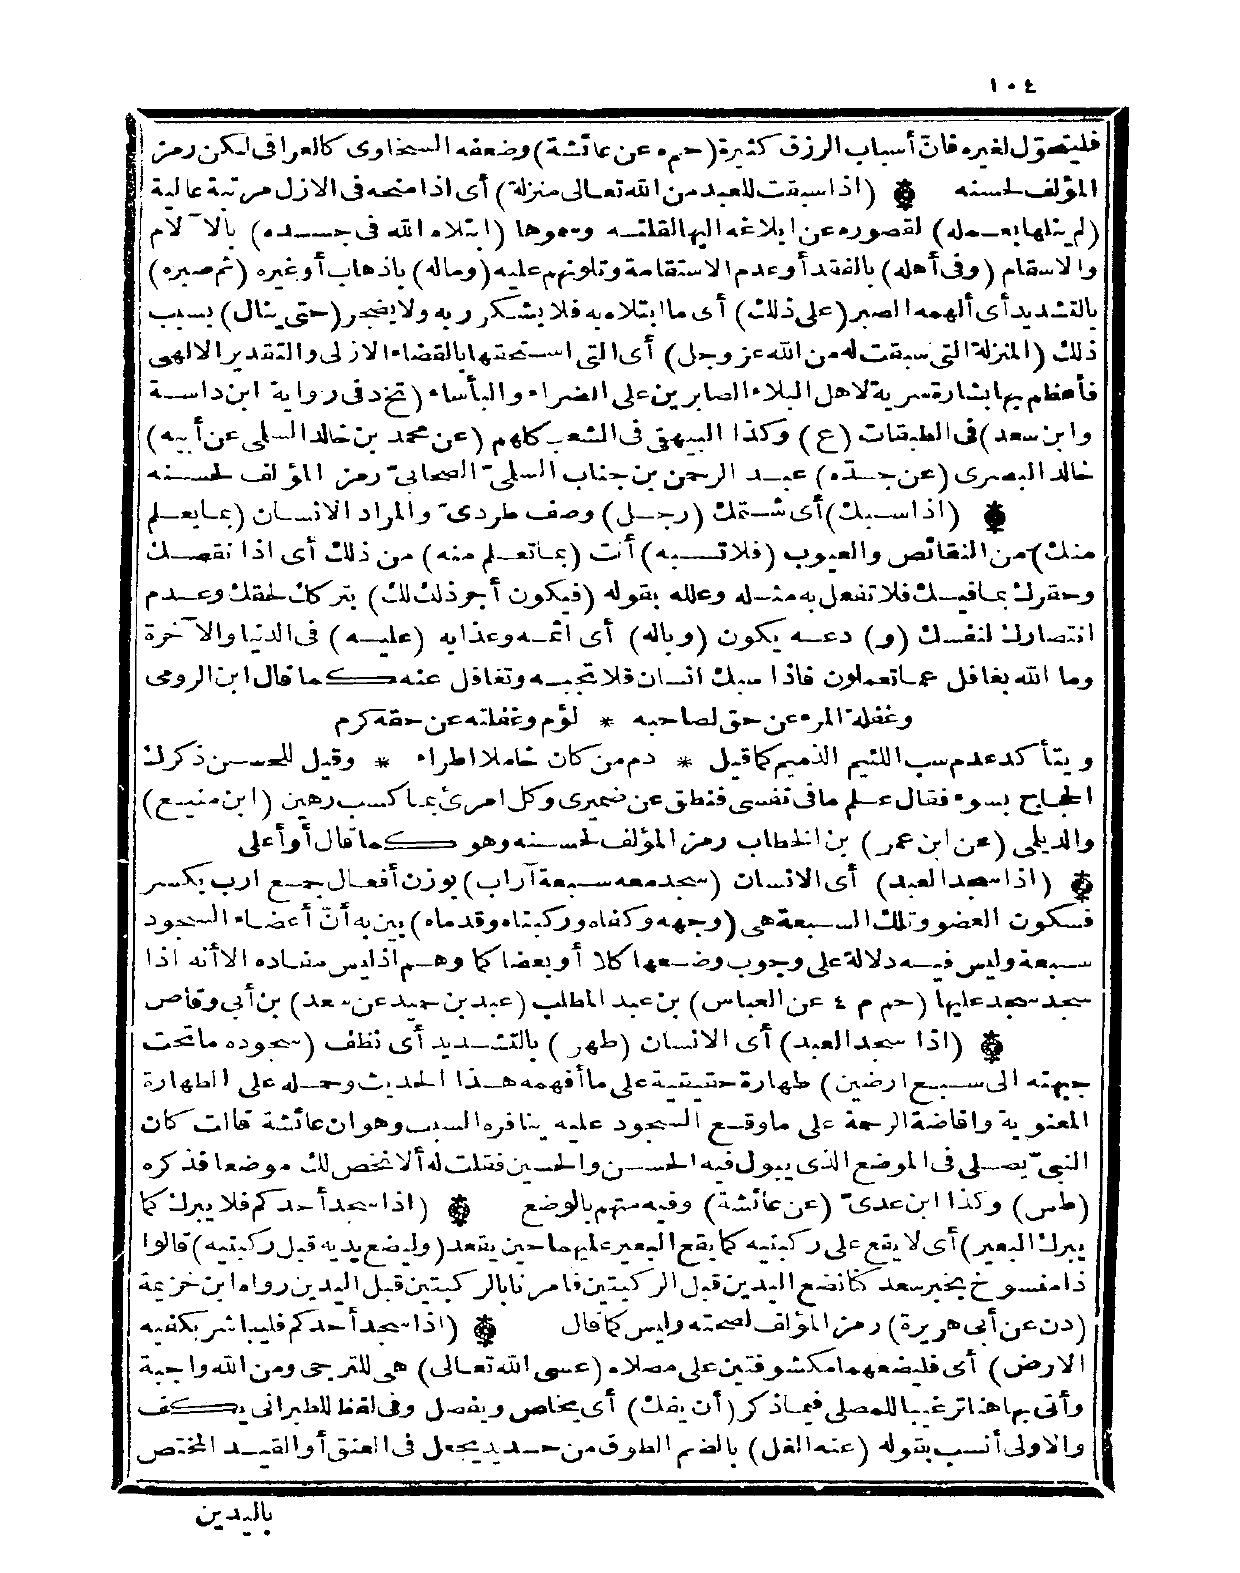 ١٠٤
فليتحوّل لغيره فانّ أسباب الرزق كثيرة (حم ه عن عائشة) وضعفه السخاوى كالعراقى لكن رمز
المؤلف لحسنه (اذا سبقت للعبد من الله تعالى منزلة) أى اذا منحه فى الازل مرتبة عالية
(لم ينلها بعمله) لقصوره عن ابلاغه اليها لقلته وسموها (ابتلاه الله فى جسده) بالآلام
والاسقام (وفى أهله) بالفقد أو عدم الاستقامة وتلونهم عليه (وماله) باذهاب أو غيره (ثم صبره)
بالتشديد أى ألهمه الصبر (على ذلك) أى ما ابتلاه به فلا يشكر ربه ولا يضجر (حتى ينال) بسبب
ذلك (المنزلة التى سبقت له من الله عز وجل) أى التى استحقها بالقضاء الازلى والتقدير الالهى
فأعظم بها بشارة سرية لاهل البلاء الصابرين على الضراء والبأساء (تخ د فى رواية ابن داسة
وابن سعد) فى الطبقات (ع) وكذا البيهقى فى الشعب كلهم (عن محمد بن خالد السلمى عن أبيه)
خالد البصرى (عن جدّه) عبد الرحمن بن جناب السلمىّ الصحابىّ رمز المؤلف لحسنه
(اذا سبك) أى شتمك (رجل) وصف طردىّ والمراد الانسان (بما يعلم
منك) من النقائص والعيوب (فلا تسبه) أنت (بما تعلم منه) من ذلك أى اذا نقصك
وحقرك بما فيك فلا تفعل به مثله وعلله بقوله (فيكون أجر ذلك لك) بتركك لحقك وعدم
انتصارك لنفسك (و) دعه يكون (وباله) أى اثمه وعذابه (عليه) فى الدنيا والآخرة
وما الله بغافل عما تعملون فاذا سبك انسان فلا تجبه وتغافل عنه كما قال ابن الرومى
وغفلة المرء عن حق لصاحبه * لؤم وغفلته عن حقه كرم
ويتأكد عدم سب اللئيم الذميم كما قيل * دم من كان خاملا اطراء * وقيل للحسن ذكرك
الحجاج بسوء فقال علم ما فى نفسى فنطق عن ضميرى وكل امرئ بما كسب رهين (ابن منيع)
والديلمى (عن ابن عمر) بن الخطاب رمز المؤلف لحسنه وهو كما قال أو أعلى
(اذا سجد العبد) أى الانسان (سجد معه سبعة آراب) بوزن أفعال جمع ارب بكسر
فسكون العضو وتلك السبعة هى (وجهه وكفاه وركبتاه وقدماه) بين به أنّ أعضاء السجود
سبعة وليس فيه دلالة على وجوب وضعها كلا أو بعضا كما وهم اذ ليس مفاده الا أنه اذا
سجد سجد عليها (حم م ٤ عن العباس) بن عبد المطلب (عبد بن حميد عن سعد) بن أبى وقاص
(اذا سجد العبد) أى الانسان (طهر) بالتشديد أى نظف (سجوده ما تحت
جبهته الى سبع ارضين) طهارة حقيقية على ما أفهمه هذا الحديث وحمله على الطهارة
المعنوية وافاضة الرحمة على ما وقع السجود عليه ينافره السبب وهو ان عائشة قالت كان
النبىّ يصلى فى الموضع الذى يبول فيه الحسن والحسين فقلت له ألا نخص لك موضعا فذكره
(طس) وكذا ابن عدىّ (عن عائشة) وفيه متهم بالوضع (اذا سجد أحدكم فلا يبرك كما
يبرك البعير) أى لا يقع على ركبتيه كما يقع البعير عليهما حين يقعد (وليضع يديه قبل ركبتيه) قالوا
ذا منسوخ بخبر سعد كنا نضع اليدين قبل الركبتين فامرنا بالركبتين قبل اليدين رواه ابن خزيمة
(دن عن أبى هريرة) رمز المؤلف لصحته وليس كما قال (اذا سجد أحدكم فليباشر بكفيه
الارض) أى فليضعهما مكشوفتين على مصلاه (عسى الله تعالى) هى للترجى ومن الله واجبة
وأتى بها هنا ترغيبا للمصلى فيما ذكر (أن يفك) أى يخلص ويفصل وفى لفظ للطبرانى يكف
والاولى أنسب بقوله (عنه الغل) بالضم الطوق من حديد يجعل فى العنق أو القيد المختص
باليدين